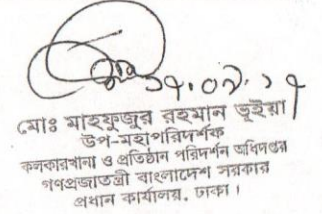 ১৭.০৭.১৭
মোঃ মাহফুজুর রহমান ভূইয়া
উপ-মহাপরিদর্শক
কলকারখানা ও প্রতিষ্ঠান পরিদর্শন অধিদপ্তর
গণপ্রজাতন্ত্রী বাংলাদেশ সরকার
প্রধান কার্যালয়, ঢাকা।